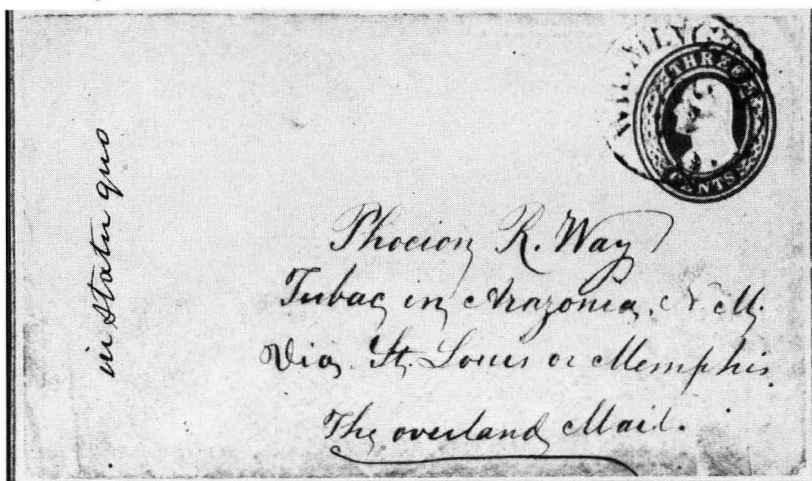 in Statu quo
WILMINGT
THREE
CENTS
Phocion R. Way
Tubac in Arazonia, N. M.
Via St. Louis or Memphis
The overland Mail.